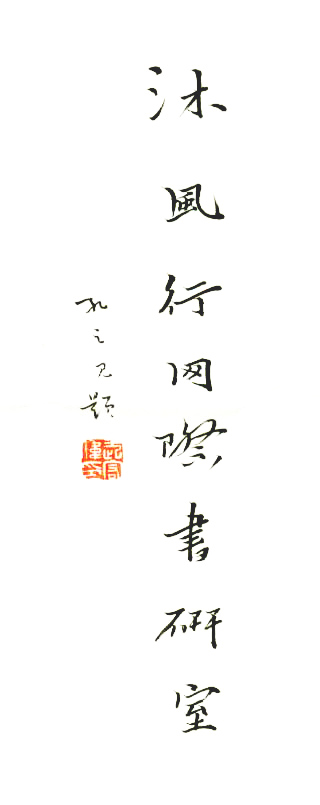 沐風行网際書研室
孔之見題